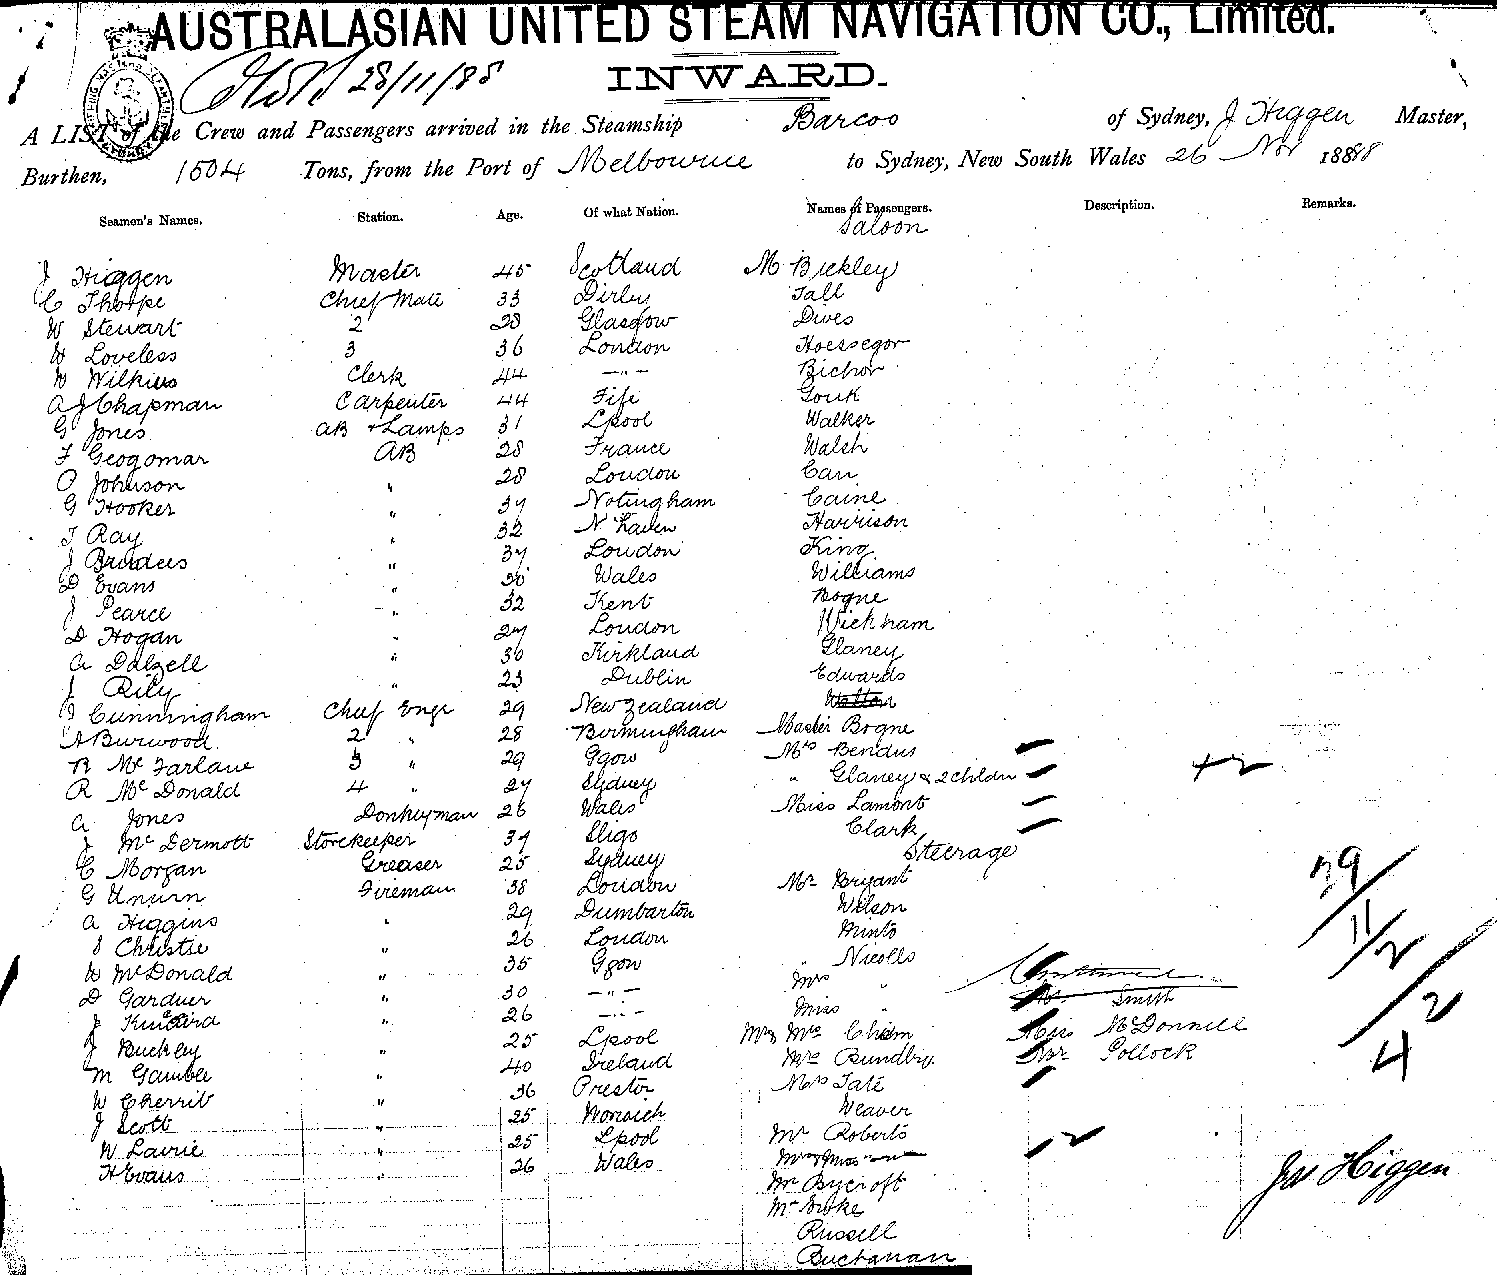 AUSTRALASIAN UNITED STEAM NAVIGATION CO., Limited.
28/11/88
INWARD.
A LIST of the Crew and Passengers arrived in the Steamship Barcoo of Sydney, J Higgen Master,
Burthen, 1504 Tons, from the Port of Melbourne to Sydney, New South Wales 26 Nov 1888
Seamen's Names. Station. Age. Of what Nation. Names of Passengers. Description. Remarks.
Saloon
J Higgen Master 45 Scotland M Bickley
C Thorpe Chief Mate 33 Dirby Tall
W Stewart 2 28 Glasgow Dives
W Loveless 3 36 London Hoessegor
W Wilkins Clerk 44 —"— Bichor
A J Chapman Carpenter 44 Fife Gouk
G Jones AB + Lamps 31 Lpool Walker
F Geogomar AB 28 France Walsh
O Johnson " 28 London Carr
G Hooker " 37 Notingham Caine
T Ray " 32 N'haven Harrison
J Brudees " 37 London King
D Evans " 30 Wales Williams
J Pearce " 32 Kent Bogne
D Hogan " 27 London Wickham
A Dalzell " 30 Kirkland Glaney
J Rily " 23 Dublin Edwards
J Cunningham Chief Engr 29 New Zealand Walton
A Burwood 2 " 28 Birmingham Master Bogne
R McFarlane 3 " 29 Ggow Mrs Bendus
R McDonald 4 " 27 Sydney " Glaney & 2 Childn +2
A Jones Donkeyman 26 Wales Miss Lamont
J McDermott Storekeeper 37 Sligo Clark
C Morgan Greaser 25 Sydney Steerage
G Unwin Fireman 38 London Mr Bryant
A Higgins " 29 Dumbarton Wilson
J Christie " 26 London Minto
W McDonald " 35 Ggow " Nicolls
D Gardner " 30 —"— Mrs " Continued
J Kincaird " 26 —"— Miss " Mr. Smith
J Buckley " 25 Lpool Mr & Mrs Chism Miss McDonnell
M Gamble " 40 Ireland Mrs Bundby Mr Pollock
W Cherrit " 36 Preston Mrs Tate
J Scott " 25 Norwich Weaver
W Laurie " 25 Lpool Mr Roberts
H Evans " 26 Wales Mrs & Miss —"— 2
Mr Bycroft
Mr Broke
Russell
Buchanan
39/11/2/2
4
Jas Higgen